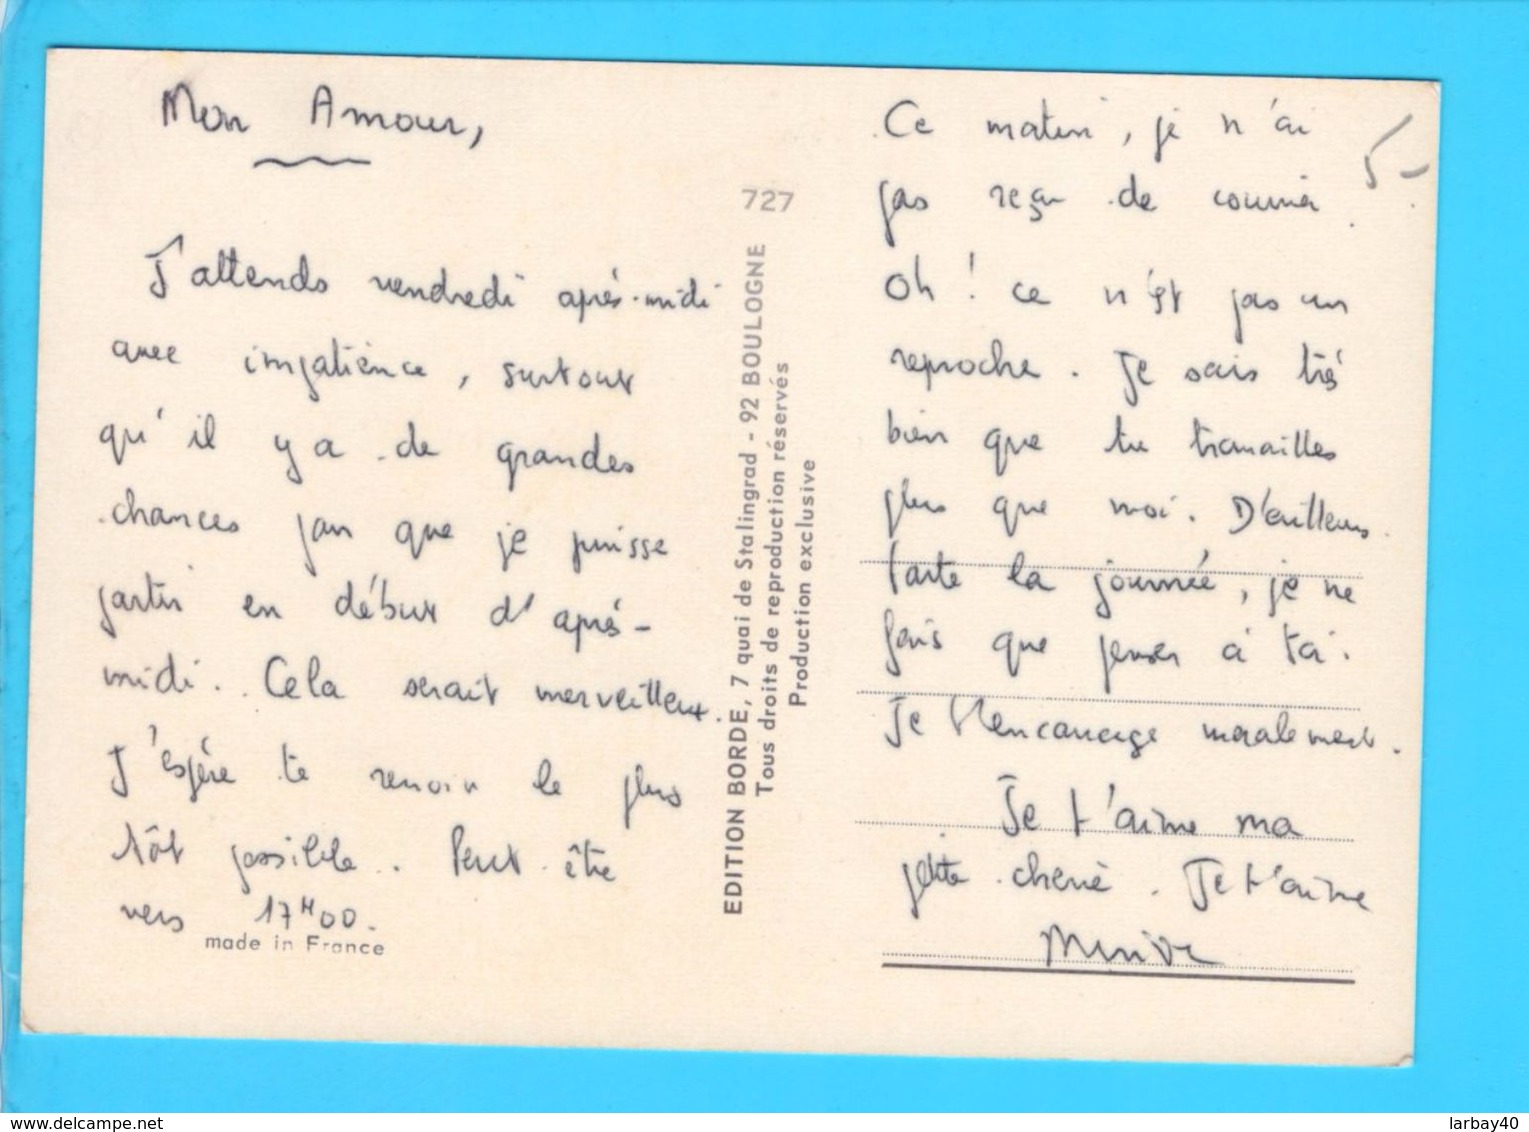 Mon Amour,
J'attends vendredi après-midi
avec impatience, surtout
qu'il y a de grandes
chances pour que je puisse
partir en début d'après-
midi. Cela serait merveilleux.
J'espère te revoir le plus
tôt possible. Peut-être
vers 17H00.
made in France
727
EDITION BORDE, 7 quai de Stalingrad - 92 BOULOGNE
Tous droits de reproduction réservés
Production exclusive
5-
Ce matin, je n'ai
pas reçu de courrier.
Oh! ce n'est pas un
reproche. Je sais très
bien que tu travailles
plus que moi. D'ailleurs
toute la journée, je ne
fais que penser à toi.
Je t'encourage moralement.
Je t'aime ma
petite chérie. Je t'aime
delcampe.net
larbay40